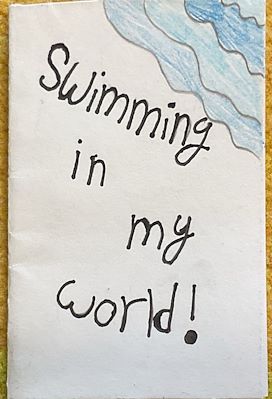 Swimming
in
my
world!